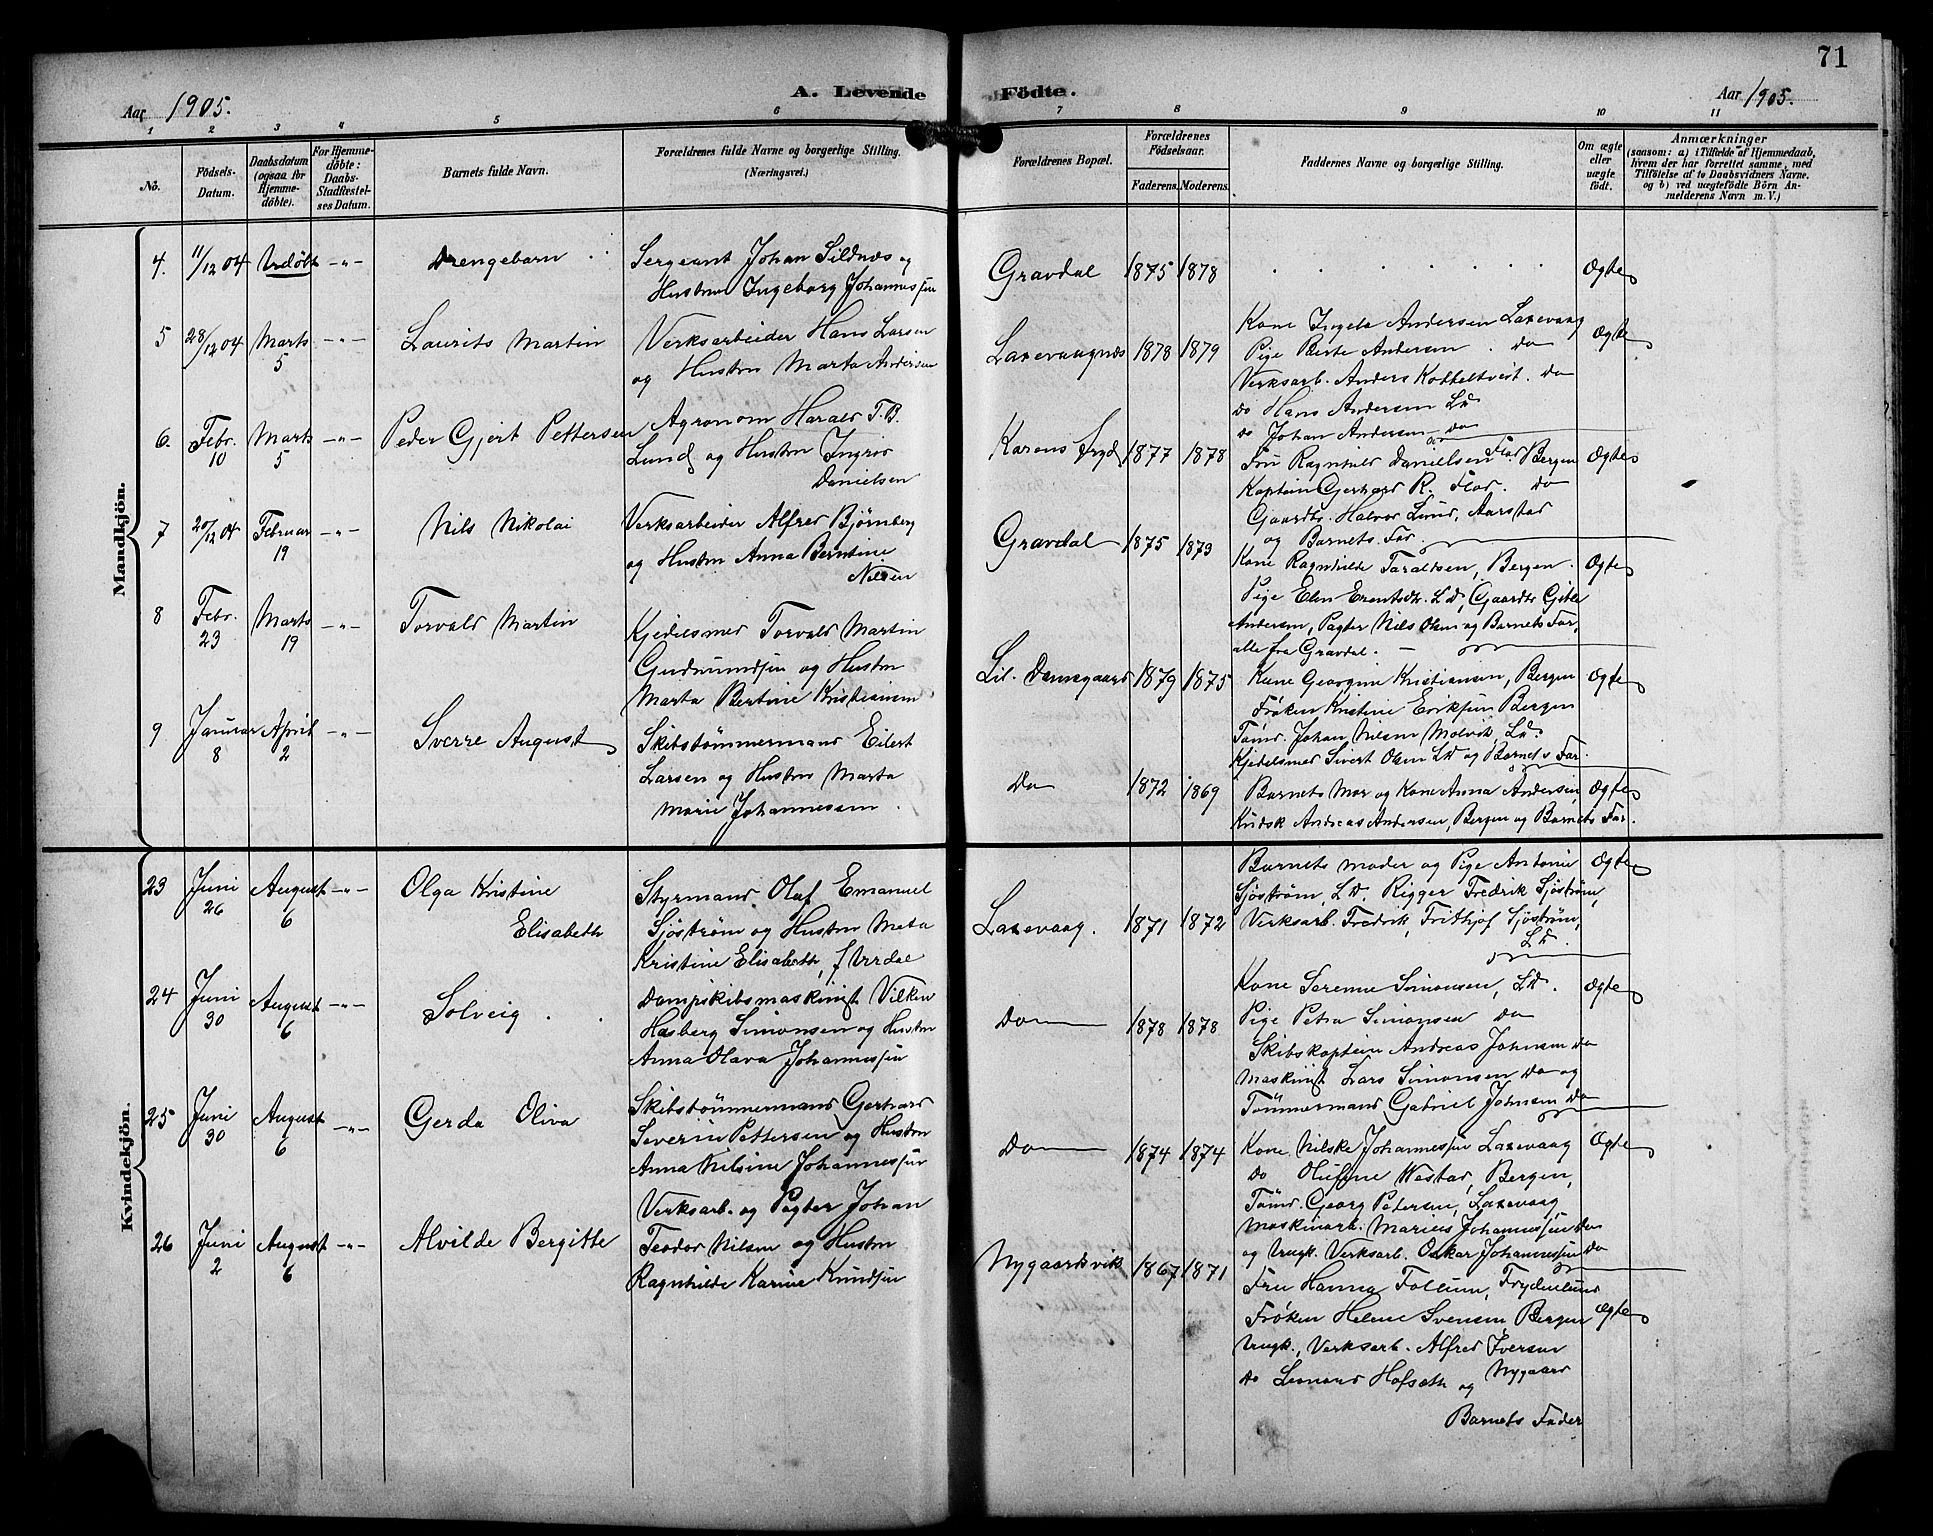 71
Aar 1905.
A. Levende Födte.
Aar 1905.
1 2 3 4 5 6 7 8 9 10 11
No.
Födsels-
Datum.
Daabsdatum
(ogsaa for
Hjemme-
döbte).
For Hjemme-
döbte:
Daabs-
Stadfestel-
ses Datum.
Barnets fulde Navn.
Forældrenes fulde Navne og borgerlige Stilling.
(Næringsvei.)
Forældrenes Bopæl.
Forældrenes
Födselsaar.
Faderens. Moderens.
Faddernes Navne og borgerlige Stilling.
Om ægte
eller
uægte
födt.
Anmærkninger
(saasom: a) i Tilfælde af Hjemmedaab,
hvem der har forrettet samme, med
Tilföielse af to Daabsvidners Navne.
og b) ved uægtefödte Börn An-
melderens Navn m. V.)
Mandkjön.
4. 11/12 04 Udøbt -"- Drengebarn
Sergeant Johan Sildnes og
Hustru Ingeborg Johannessen
Gravdal 1875 1878
Ægte
5 28/12 04 Marts 5 -"- Laurits Martin
Verksarbeider Hans Larsen
og Hustru Marta Andersen
Laxevaagnes 1878 1879
Kone Ingela Andersen Laxevaag
Pige Berte Andersen do
Verksarb. Anders Kobbeltveit. do
do Hans Andersen Ld
do Johan Andersen do
Ægte
6. Febr. 10 Marts 5 -"- Peder Gjert Pettersen
Agronom Harald T. B.
Lund og Hustru Ingrid
Danielsen
Karens Fryd 1877 1878
Fru Ragnhild Daniellsen Flor Bergen
Kaptein Gerhard R. Flor. do
Gaardbr. Halvor Lund, Aarstad
og Barnets Far.
Ægte
7 20/12 04 Februar 19 -"- Nils Nikolai
Verksarbeider Alfred Bjørnberg
og Hustru Anna Berntine
Nilsen
Gravdal 1875 1873
Kone Ragnhilde Taraldsen, Bergen.
Pige Elen Erentsdtr. Ld, Gaardbr Gitle
Andersen, Pagter Nils Olsen og Barnets Far,
alle fra Gravdal.
Ægte
8 Febr. 23 Marts 19 -"- Torvald Martin
Kjedelsmed Torvald Martin
Gudmundsen og Hustru
Marta Bertine Kristiansen
Lil. Damsgaard 1879 1875
Kone Georgine Kristiansen, Bergen
Frøken Kristine Eriksen Bergen
Tømd. Johan Nilsen Molvik, Ld.
Kjedelsmed Sivert Olsen Ld og Barnets Far.
Ægte
9 Januar 8 April 2 -"- Sverre August
Skibstømmermand Eilert
Larsen og Hustru Marta
Marie Johannessen.
Do 1872 1869
Barnets Mor og Kone Anna Andersen,
Kudsk Andreas Andersen, Bergen og Barnets Far.
Ægte
Kvindekjön.
23 Juni 26 August 6 -"- Olga Kristine
Elisabeth
Styrmand. Olaf Emanuel
Sjøstrøm og Hustru Meta
Kristine Elisabeth, f Verdal
Laxevaag. 1871 1872
Barnets moder og Pige Antonie
Sjøstrøm, Ld. Rigger Fredrik Sjøstrøm,
Verksarb. Fredrik, Frithjof Sjøstrøm,
Ld.
Ægte
24 Juni 30 August 6 -"- Solveig
Dampskibsmaskinist Vilken
Hasberg Simonsen og Hustru
Anna Olava Johannessen
Do 1878 1878
Kone Serene Simonsen, Ld.
Pige Petra Simonsen do
Skibskaptein Andreas Johnsen do
Maskinist Lars Simonsen do og
Tømmermand Gabriel Johnsen do
Ægte
25 Juni 30 August 6 -"- Gerda Oliva
Skibstømmermand Gerhard
Severin Pettersen og Hustru
Anna Nilsine Johannessen
Do 1874 1874
Kone Nilske Johannessen Laxevaag
do Olufine Westad, Bergen,
Tømd. Georg Petersen, Laxevaag
Maskinarb. Marius Johannessen do
og Ungk. Verksarb. Oskar Johannessen do
Ægte
26 Juni 2 August 6 -"- Alvilde Bergitte
Verksarb. og Pagter Johan
Teodor Nilsen og Hustru
Ragnhilde Karine Knudsen
Nygaardsvik 1867 1871
Fru Hanna Follum, Frydenlund
Frøken Helene Svensen Bergen
Ungk., Verksarb. Alfred Iversen
Nygaard
do Leonard Hofseth og
Barnets Fader
Ægte